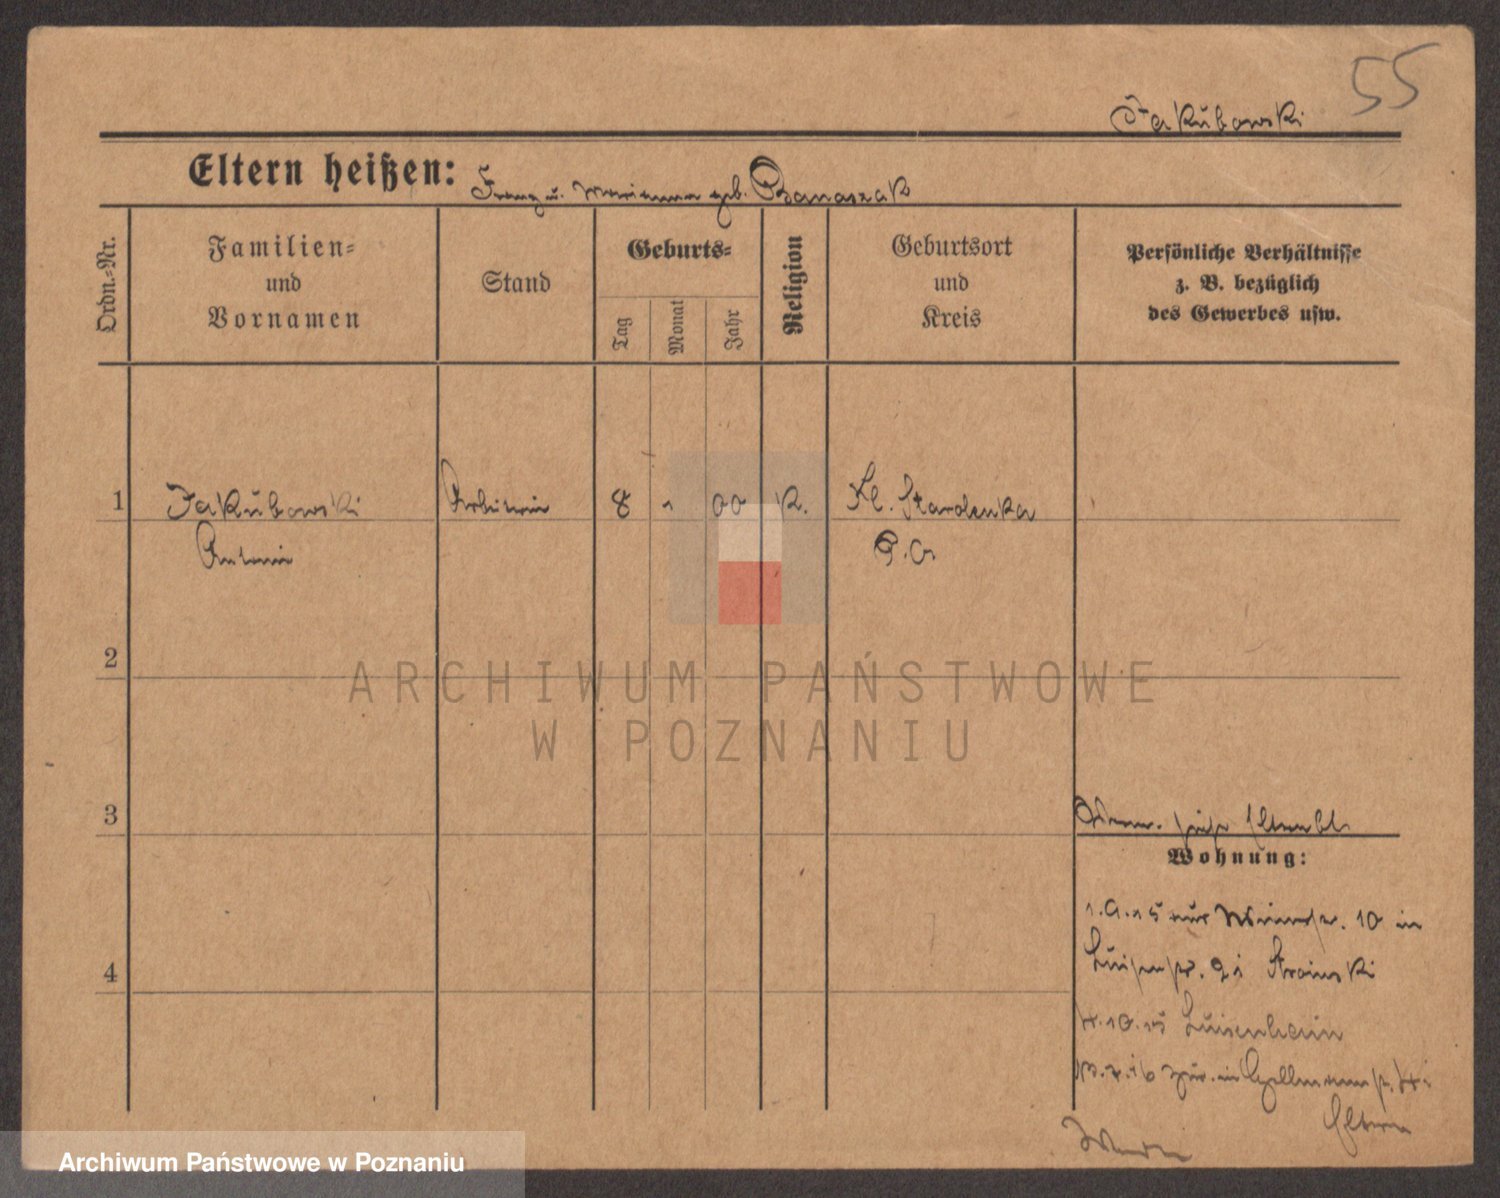 55
Jakubowski
Eltern heißen: Franz u. Marianna geb. Banaszak
Ordn.-Nr.
Familien-
und
Vornamen
Stand
Geburts-
Tag
Monat
Jahr
Religion
Geburtsort
und
Kreis
Persönliche Verhältnisse
z. B. bezüglich
des Gewerbes usw.
1 Jakubowski Arbeiterin 8 1 00 K. Kl. Starolenka
Antonie P. O.
2
3
Wohnung:
1.9.15 aus 10 in
Luisenstr. 21
4
10.15 Luisenhain
16 zur. in
Eltern
ARCHIWUM PAŃSTWOWE
W POZNANIU
Archiwum Państwowe w Poznaniu